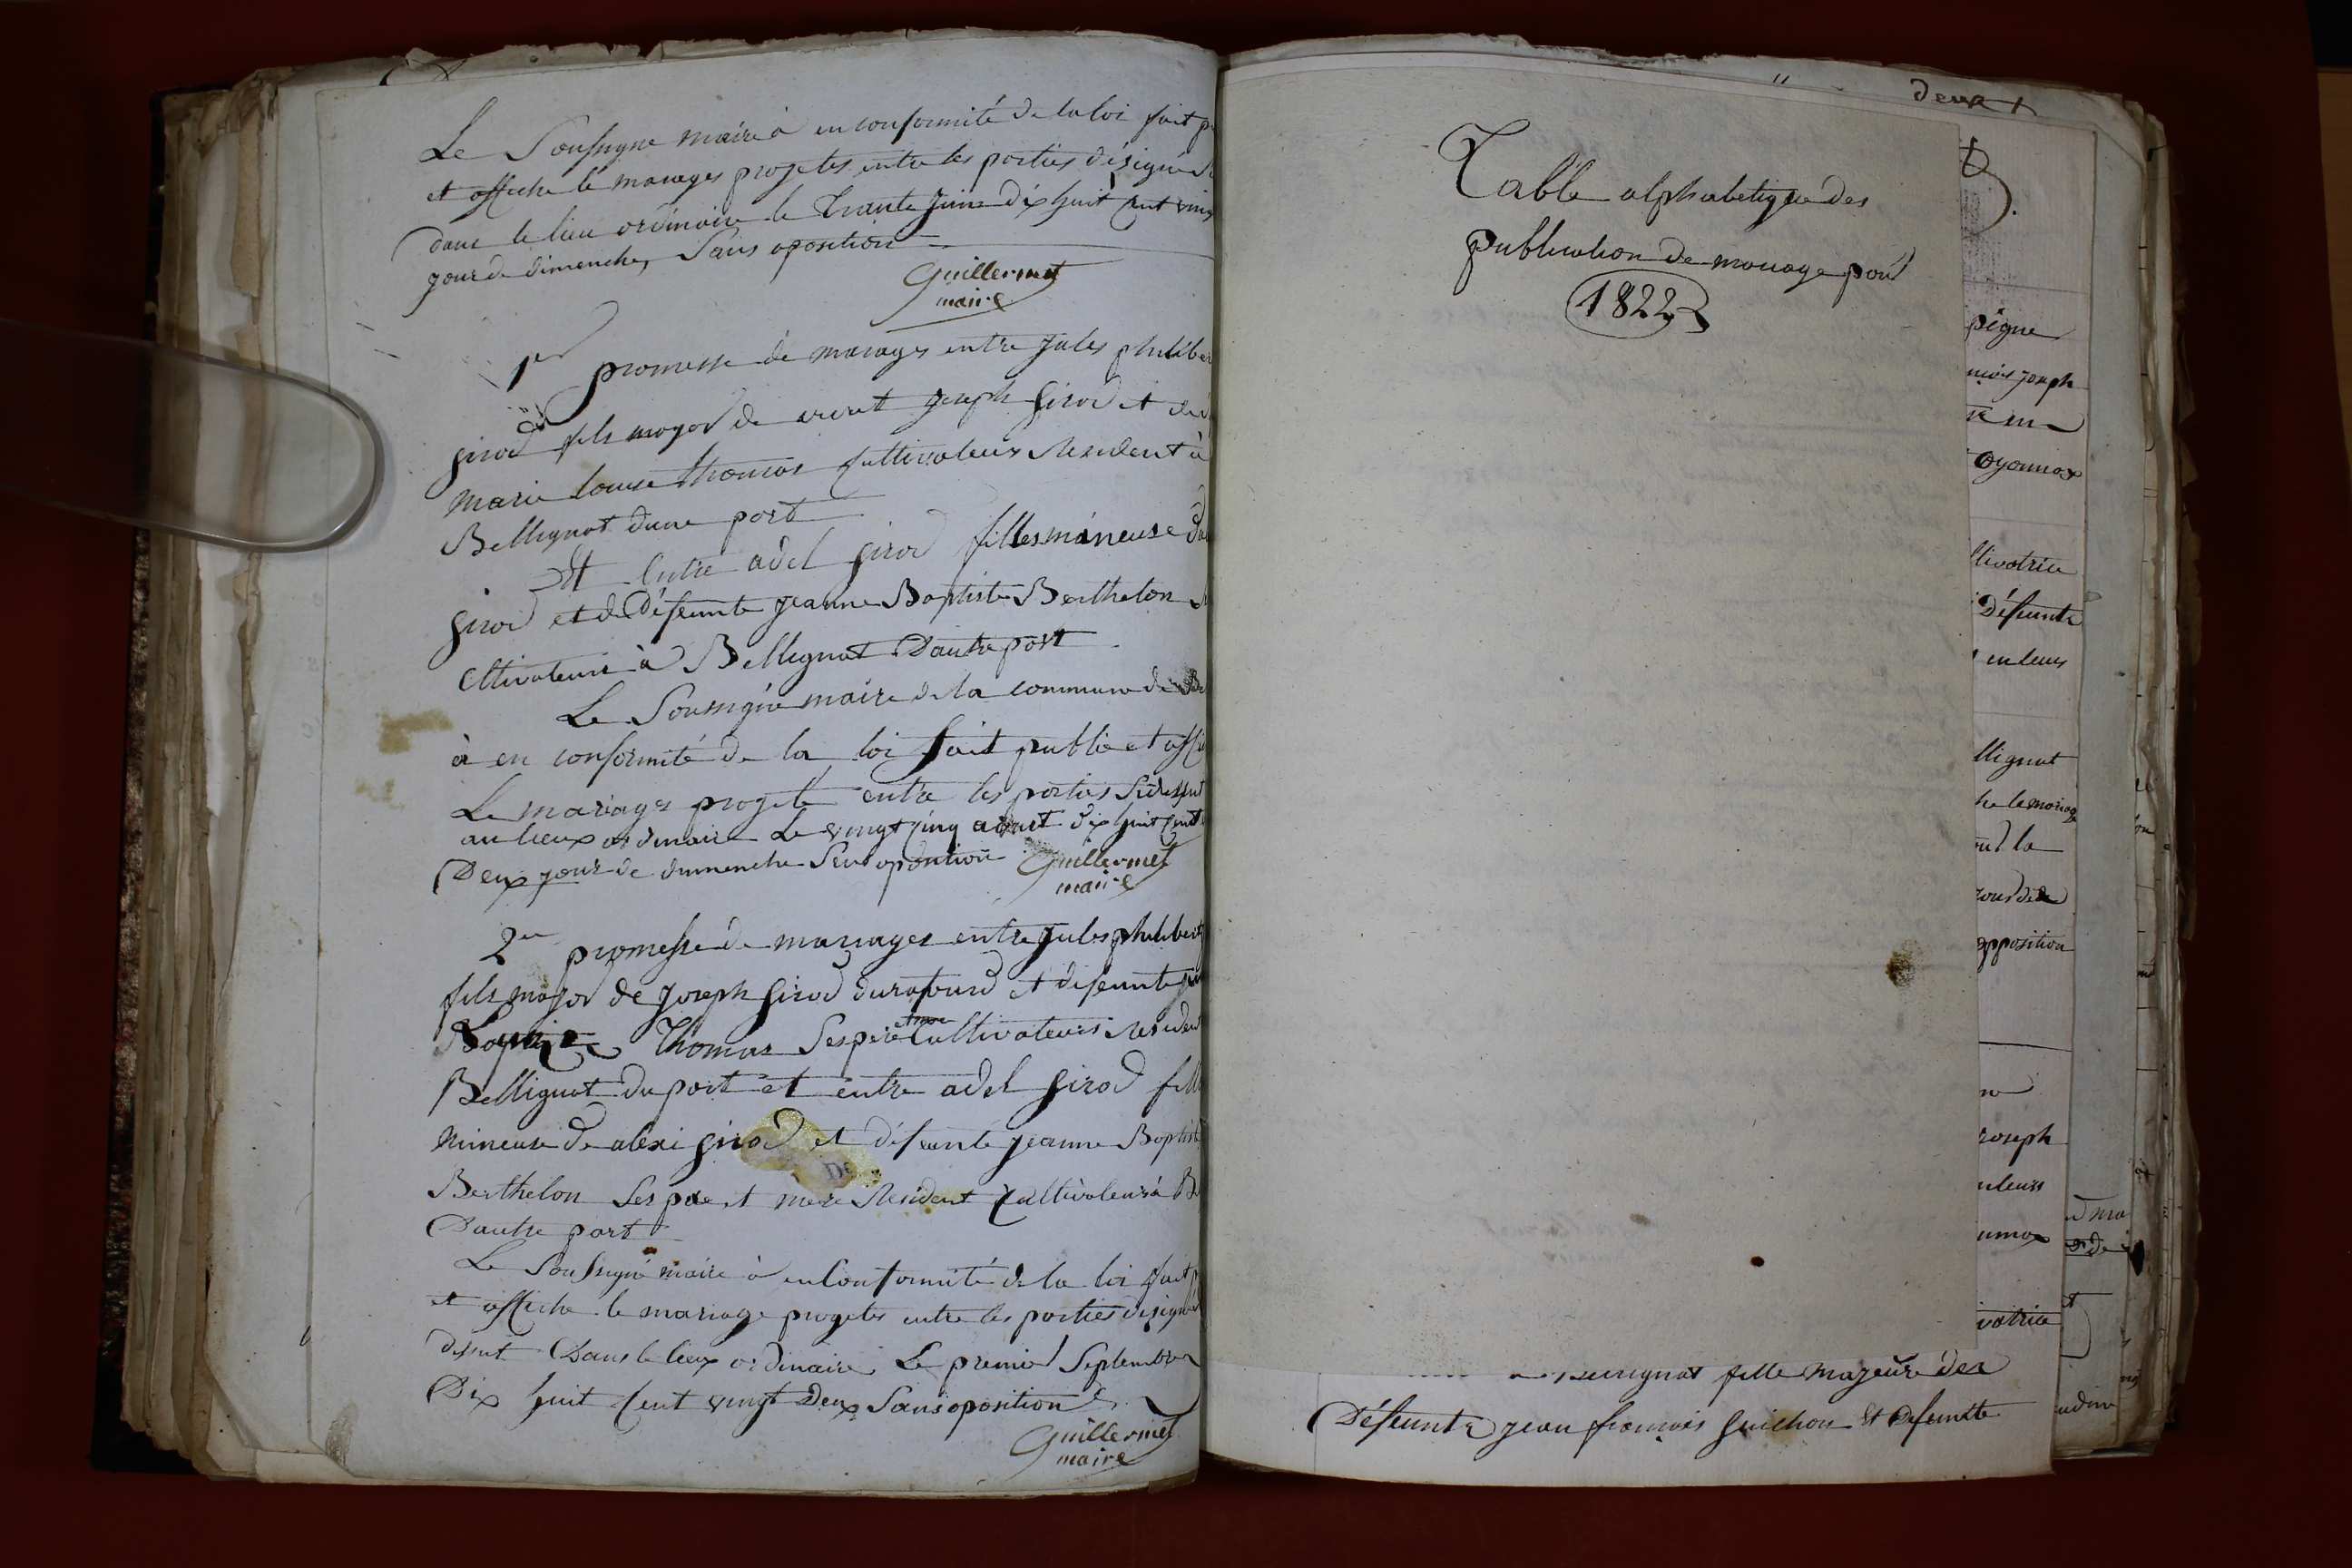 Le Soussigne maire à en conformité de la loi fait
et affiche le mariages projetés entre les parties désigné
dans le lieu ordinaire le trante juin dix huit cent vin
jour de dimenche, Sans oposition
Guillermet
maire
1er promesse de mariages entre jules philiber
girod fils major de vivant joseph girod et de
marie louise thomas Cultivateurs Resident à
Bellignat dune part
Et Entre adel girod filles mineuse d
girod et de défeunte jeanne Baptiste Berthelon
Cltivateur à Bellignat Dautre part
Le Soussigné maire de la commune de Be
à en conformité de la loi fait publié et affi
Le mariages projeté entre les parties
au lieux ordinaire Le vingt cinq aoust dix huit cent
Deux jour de dimmenche Sens oposition Guillermet
maire
2em promesse de mariages entre jules philibert
fils major de joseph girod durafourd et défeunte
Louise Thomas Ses père et mere Cultivateurs Resident
Bellignat du part et entre adel girod fill
mineuse de alexi girod et défeunte jeanne Baptist
Berthelon Ses père et mere Resident Cultivateur à B
Dautre part
Le Soussigné maire à en Conformité de la loi fait
et affiche le mariage projetés entre les parties désigné
dessut Dans le lieux ordinaire Le premier Septembre
Dix huit Cent vingt Deux Sans oposition
Guillermet
maire
deux
Table alphabetique des
publication de mariage pour
1822
pigne
joseph
oyonnax
ltivatrice
Défeunte
en leurs
llignat
he le mariage
la
opposition
joseph
nnax
ivatrice
fille majeure de
Défeunte jean françois guichon et defeunte